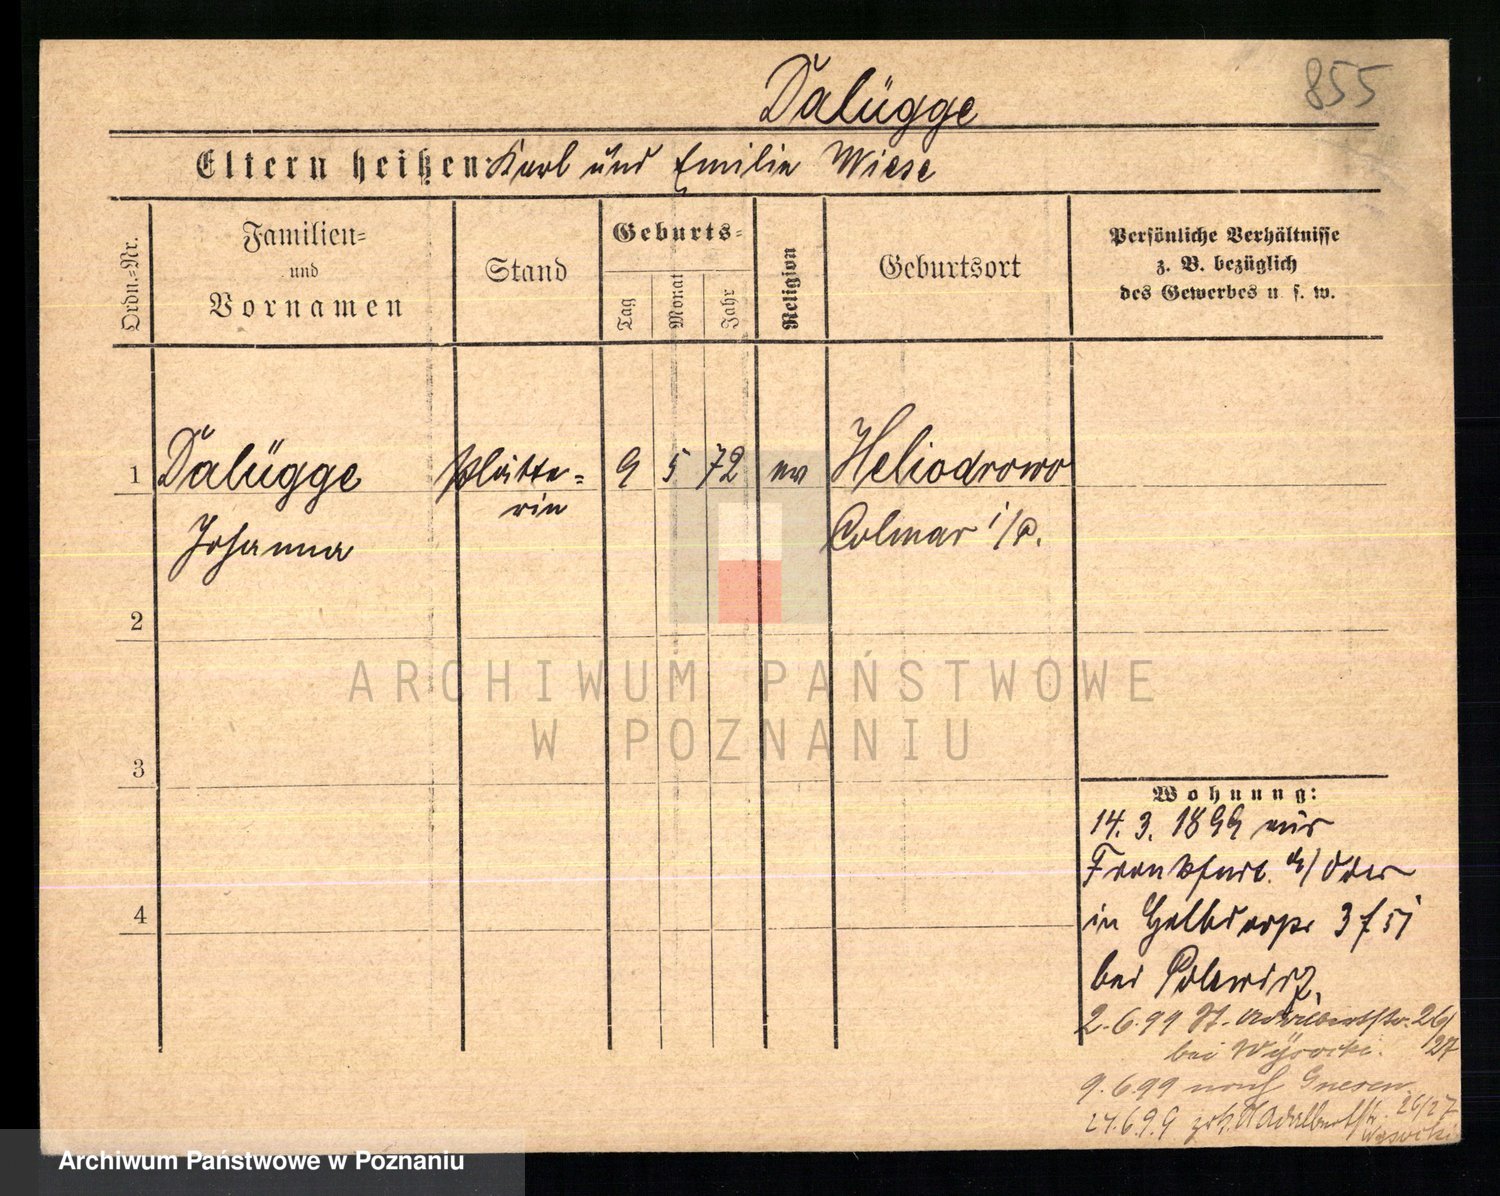 Dalügge
855
Eltern heißen: Karl und Emilie Wiese
Ordn.-Nr.
Familien-
und
Vornamen
Stand
Geburts-
Tag
Monat
Jahr
Religion
Geburtsort
Persönliche Verhältnisse
z. B. bezüglich
des Gewerbes u. s. w.
1 Dalügge Plätte- 9 5 72 ev Heliodrowo
rin
Johanna Colmar i/P.
2
ARCHIWUM PAŃSTWOWE
W POZNANIU
3
4
Wohnung:
14. 3. 1899 aus
Frankfurt a/Oder
in 3
bei
2.6.99 St. Adalbertstr. 26/
27
bei Wysocki.
9.6.99 nach Gnesen
27.6.99 zck. St Adalbertstr. 26/27
Wysocki
Archiwum Państwowe w Poznaniu